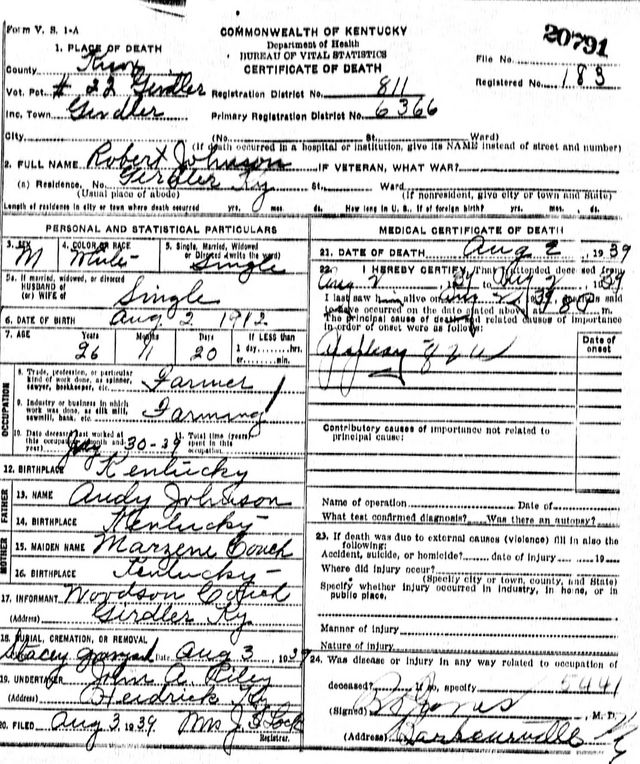 Form V. S. 1-A
COMMONWEALTH OF KENTUCKY
Department of Health
BUREAU OF VITAL STATISTICS
CERTIFICATE OF DEATH
20791
File No.
Registered No. 183
1. PLACE OF DEATH
County Knox
Vot. Pct. # 22 Girdler
Inc. Town Girdler
Registration District No. 811
Primary Registration District No. 6366
City (No. St. Ward)
(If death occurred in a hospital or institution, give its NAME instead of street and number)
2. FULL NAME Robert Johnson IF VETERAN, WHAT WAR?
(a) Residence. No. Girdler Ky St. Ward
(Usual place of abode) (If nonresident, give city or town and State)
Length of residence in city or town where death occurred yrs. mos. ds. How long in U. S., if of foreign birth? yrs. mos. ds.
PERSONAL AND STATISTICAL PARTICULARS
3. SEX M
4. COLOR OR RACE White
5. Single, Married, Widowed or Divorced (write the word) Single
5a. If married, widowed, or divorced
HUSBAND of
(or) WIFE of Single
6. DATE OF BIRTH Aug 2 1912
7. AGE Years Months Days If LESS than
26 11 20 1 day, hrs.
or min.
OCCUPATION
8. Trade, profession, or particular
kind of work done, as spinner,
sawyer, bookkeeper, etc. Farmer
9. Industry or business in which
work was done, as silk mill,
sawmill, bank, etc. Farming
10. Date deceased last worked at
this occupation (month and
year) July 30-39
11. Total time (years)
spent in this
occupation
12. BIRTHPLACE Kentucky
FATHER
13. NAME Andy Johnson
14. BIRTHPLACE Kentucky
MOTHER
15. MAIDEN NAME Marzene Couch
16. BIRTHPLACE Kentucky
17. INFORMANT Woodson Couch
(Address) Girdler Ky.
18. BURIAL, CREMATION, OR REMOVAL
Date Aug 3, 1939
19. UNDERTAKER John A. Riley
(Address) Heidrick Ky
20. FILED Aug 3 1939 Mrs J.
Registrar.
MEDICAL CERTIFICATE OF DEATH
21. DATE OF DEATH Aug 2, 1939
22. I HEREBY CERTIFY, That I attended deceased from
Aug 2, 39 to Aug 2, 1939
I last saw him alive on Aug 2, 39, death is said
to have occurred on the date stated above at m.
The principal cause of death and related causes of importance
in order of onset were as follows:
Date of
onset
Contributory causes of importance not related to
principal cause:
Name of operation Date of
What test confirmed diagnosis? Was there an autopsy?
23. If death was due to external causes (violence) fill in also the
following:
Accident, suicide, or homicide? date of injury 19
Where did injury occur?
(Specify city or town, county, and State)
Specify whether injury occurred in industry, in home, or in
public place.
Manner of injury
Nature of injury
24. Was disease or injury in any way related to occupation of
deceased? If so, specify 5441
(Signed) Jones, M. D.
(Address) Barbourville Ky